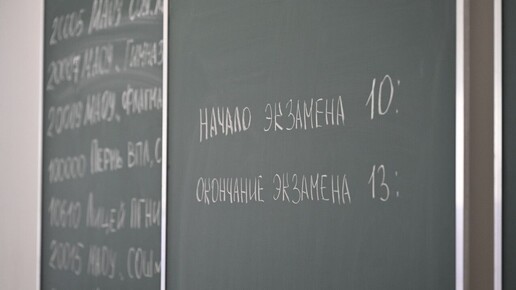 20005 МАОУ
20007 МАОУ, Гимназ
20009 МАОУ, Флагма
100000 Пермь ВПЛ, С
10610 Лицей ПГНИ
20015 МАОУ, СОШ
НАЧАЛО ЭКЗАМЕНА 10:
ОКОНЧАНИЕ ЭКЗАМЕНА 13: